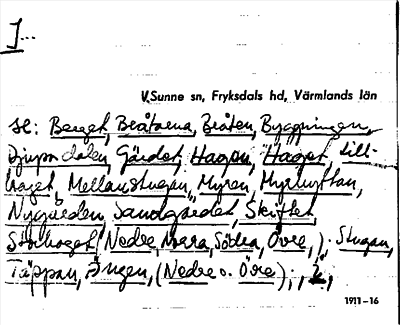 I...
V.Sunne sn, Fryksdals hd, Värmlands län
se: Berget, Bråtarna, Bråten, Byggningen,
Djupa dalen, Gärdet, Hagen, Haget, Lill-
haget, Mellanstugan, Myren, Myrhyttan,
Nygården, Sandgärdet, Skiftet,
Storhaget, (Nedre, Norra, Södra, Övre,), Stugan,
Täppan, Ängen, (Nedre o. Övre),
1911-16